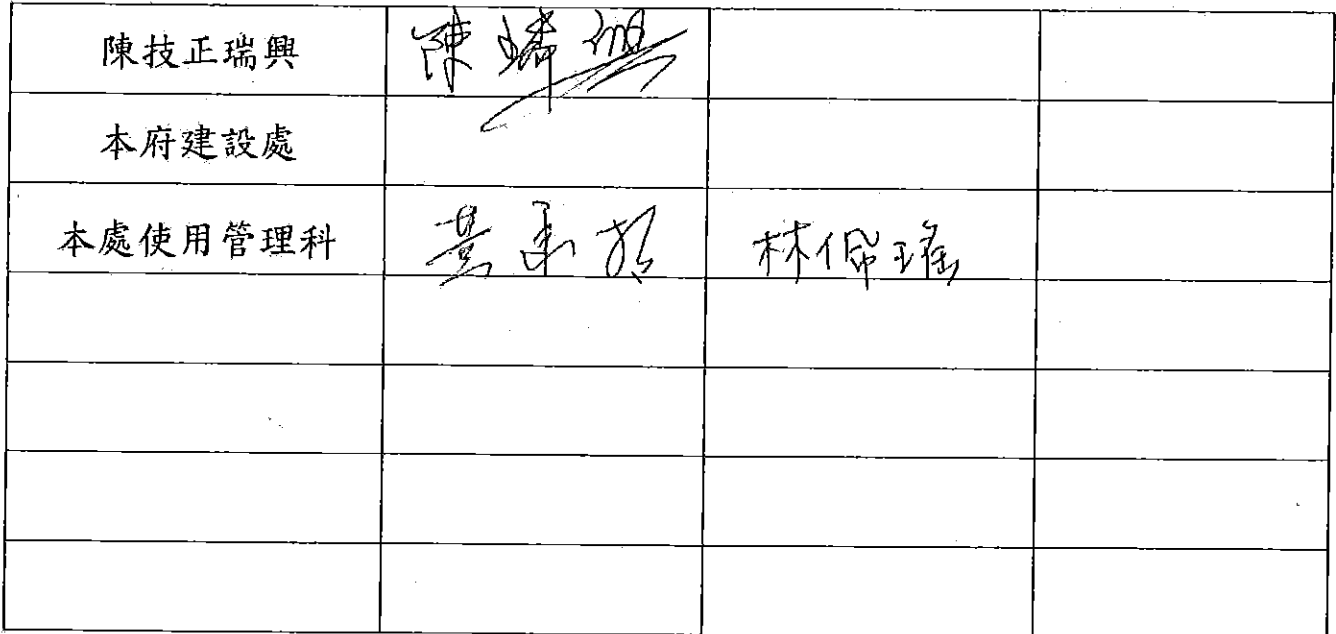 陳技正瑞興 陳瑞興
本府建設處
本處使用管理科 黃 林佩瑤